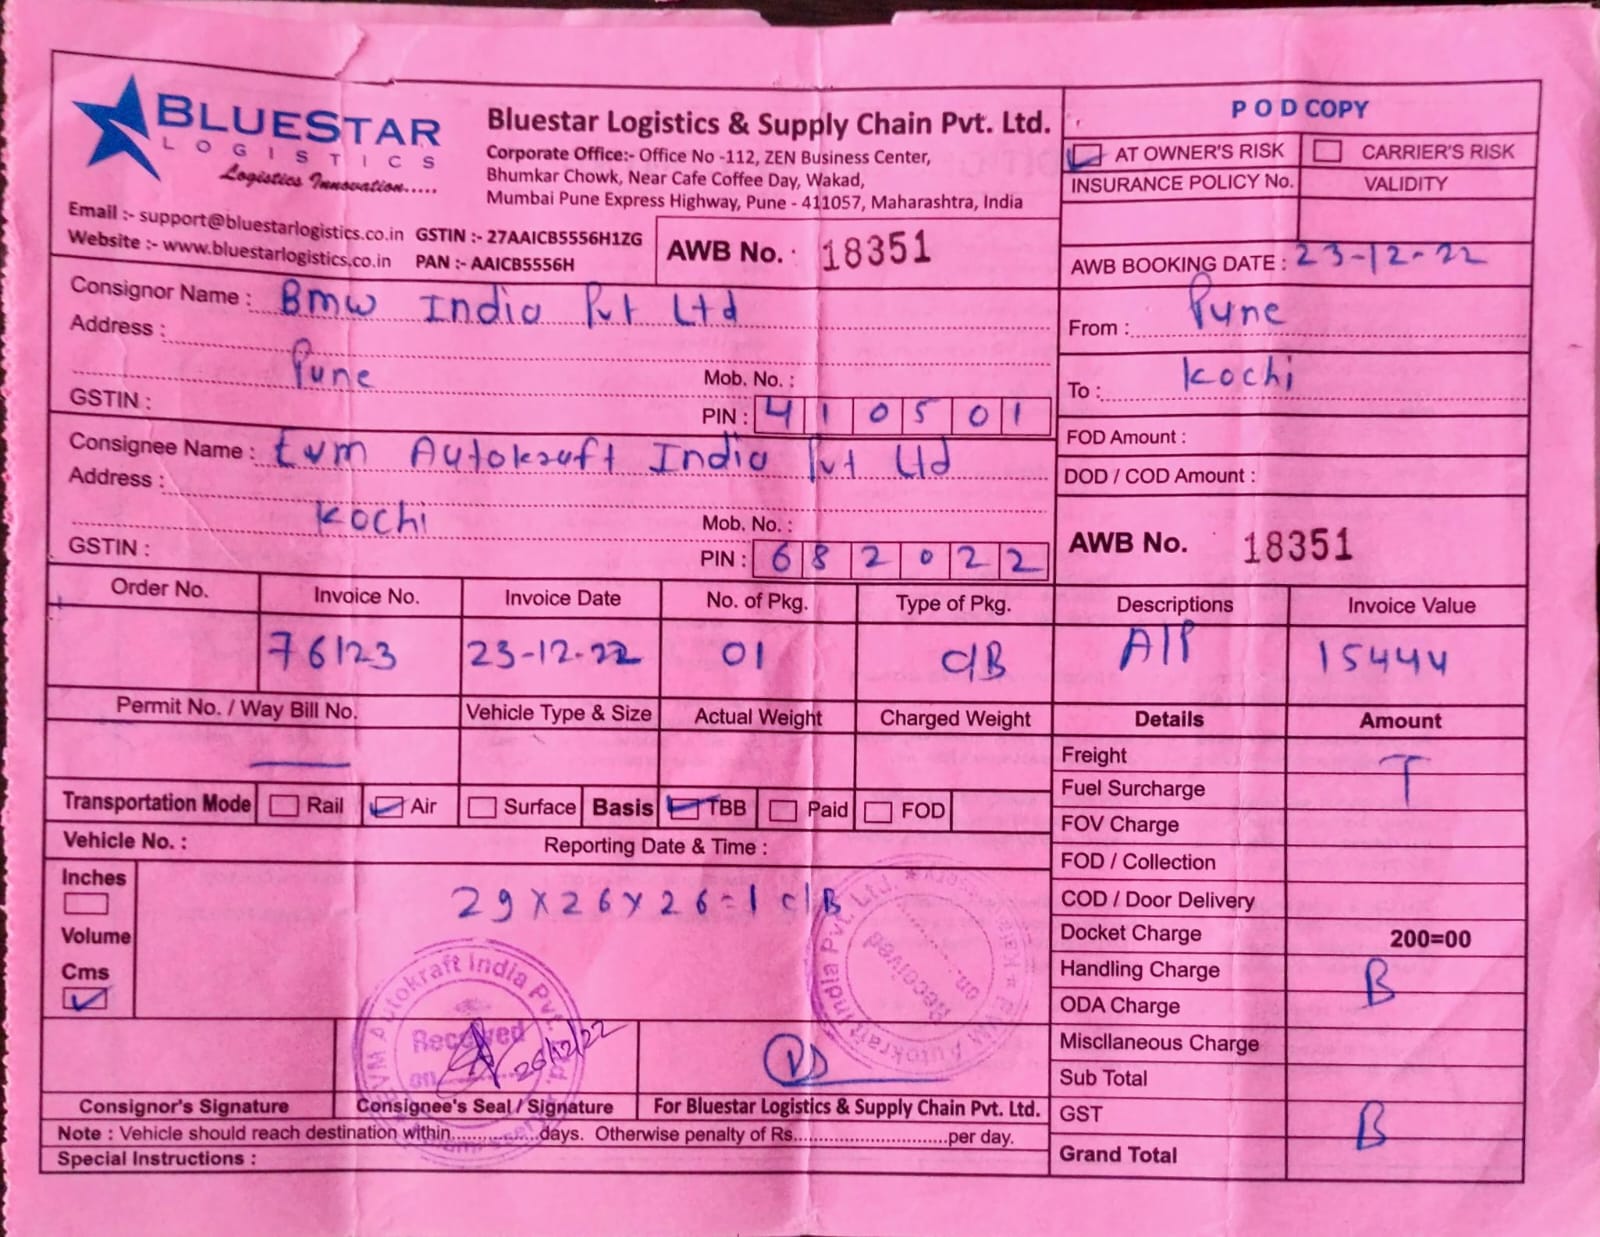 BLUESTAR
LOGISTICS
Logistics Innovation.....
Bluestar Logistics & Supply Chain Pvt. Ltd.
Corporate Office:- Office No -112, ZEN Business Center,
Bhumkar Chowk, Near Cafe Coffee Day, Wakad,
Mumbai Pune Express Highway, Pune - 411057, Maharashtra, India
Email :- support@bluestarlogistics.co.in GSTIN :- 27AAICB5556H1ZG
Website :- www.bluestarlogistics.co.in PAN :- AAICB5556H
AWB No. 18351
POD COPY
AT OWNER'S RISK CARRIER'S RISK
INSURANCE POLICY No. VALIDITY
AWB BOOKING DATE : 23-12-22
From : Pune
To : Kochi
FOD Amount :
DOD / COD Amount :
AWB No. 18351
Consignor Name : Bmw India Pvt Ltd
Address :
Pune Mob. No. :
GSTIN : PIN : 410501
Consignee Name : Evm Autokraft India Pvt Ltd
Address :
Kochi Mob. No. :
GSTIN : PIN : 682022
Order No. Invoice No. Invoice Date No. of Pkg. Type of Pkg. Descriptions Invoice Value
76123 23-12-22 01 C/B A/P 15444
Permit No. / Way Bill No. Vehicle Type & Size Actual Weight Charged Weight Details Amount
Transportation Mode Rail Air Surface Basis TBB Paid FOD
Vehicle No. : Reporting Date & Time :
Inches
Volume
Cms
29 X 26 X 26 = 1 C/B
Freight
T
Fuel Surcharge
FOV Charge
FOD / Collection
COD / Door Delivery
Docket Charge 200=00
Handling Charge B
ODA Charge
Miscllaneous Charge
Sub Total
GST B
Grand Total
EVM Autokraft India Pvt. Ltd.
Received
on 26/12/22
EVM Autokraft India Pvt. Ltd.
Received
on
Consignor's Signature Consignee's Seal / Signature For Bluestar Logistics & Supply Chain Pvt. Ltd.
Note : Vehicle should reach destination within...............days. Otherwise penalty of Rs..............................per day.
Special Instructions :